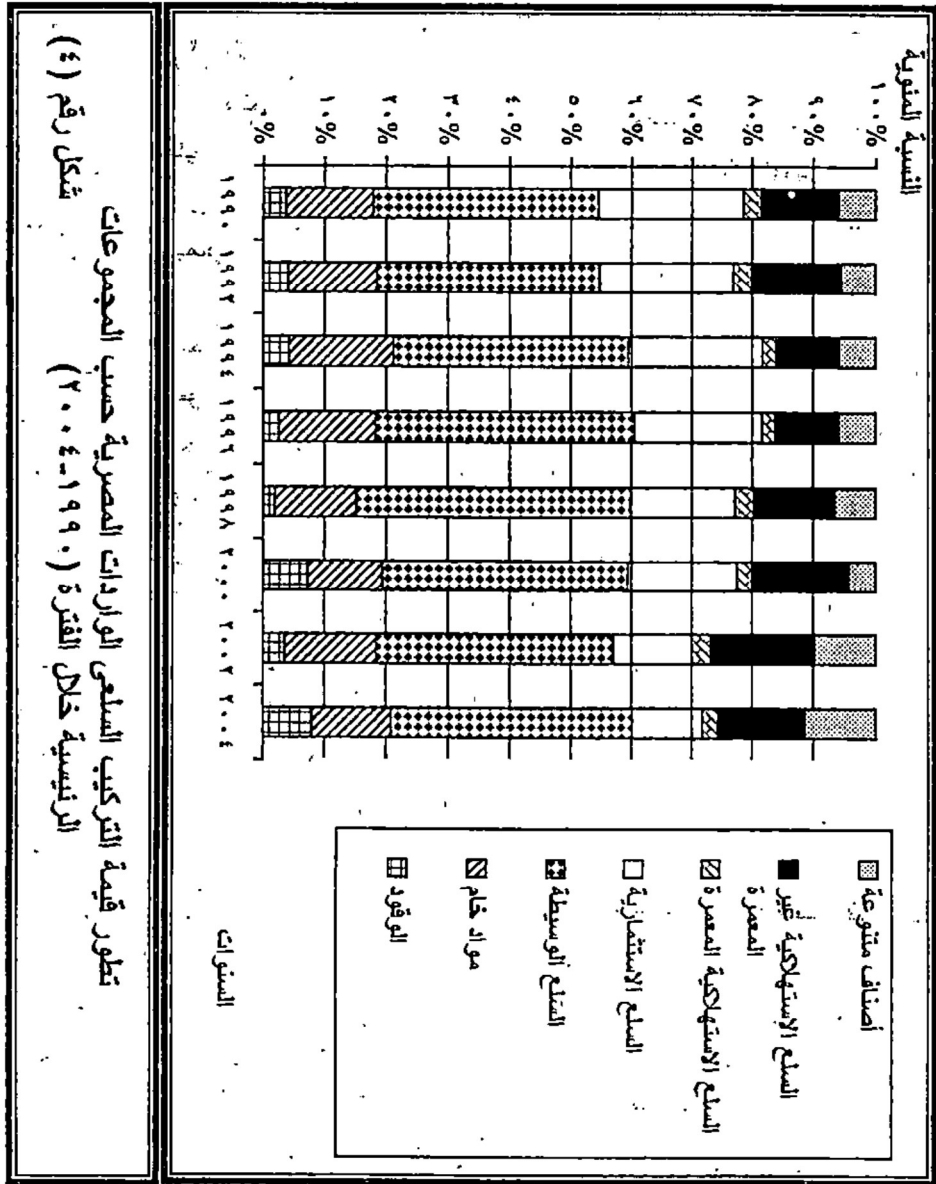 النسبة المئوية
%١٠٠
%٩٠
%٨٠
%٧٠
%٦٠
%٥٠
%٤٠
%٣٠
%٢٠
%١٠
%٠
١٩٩٠ ١٩٩٢ ١٩٩٤ ١٩٩٦ ١٩٩٨ ٢٠٠٠ ٢٠٠٢ ٢٠٠٤
السنوات
أصناف متنوعة
السلع الإستهلاكية غير
المعمرة
السلع الإستهلاكية المعمرة
السلع الاستثمارية
السلع الوسيطة
مواد خام
الوقود
تطور قيمة التركيب السلعى الواردات المصرية حسب المجموعات
شكل رقم (٤) الرئيسية خلال الفترة (١٩٩٠-٢٠٠٤)